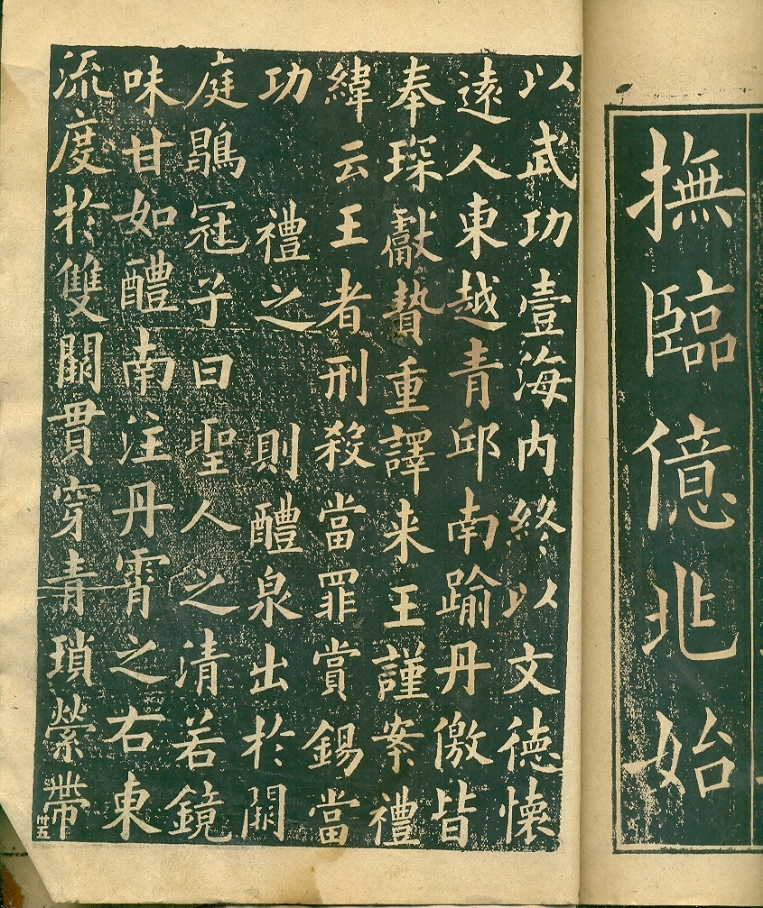 撫臨億兆始
以武功壹海内終以文德懷
遠人東越青邱南踰丹徼皆
奉琛獻贄重譯来王謹案禮
緯云王者刑殺當罪賞錫當
功 禮之 則醴泉出於闕
庭鶡冠子曰聖人之清若鏡
味甘如醴南注丹霄之右東
流度於雙闕貫穿青瑣縈帶
卅五